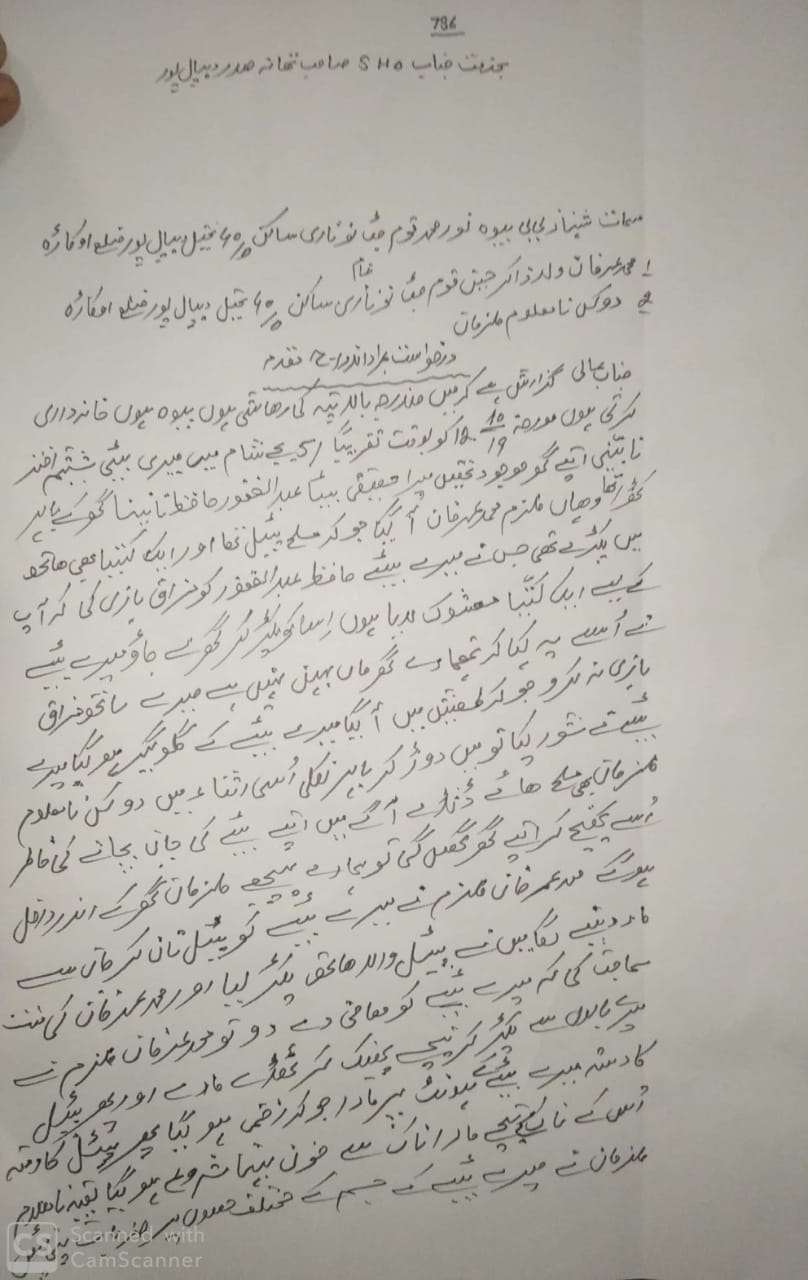 786
بخدمت جناب SHO صاحب تھانہ صدر دیپال پور
مسمات شہناز بی بی بیوہ نور محمد قوم جٹ نوناری ساکن تحصیل دیپال پور ضلع اوکاڑہ
بنام
1 محمد عرفان ولد ذاکر حسین قوم جٹ نوناری ساکن تحصیل دیپال پور ضلع اوکاڑہ
2 دو کس نامعلوم ملزمان
درخواست بمراد اندراج مقدمہ
جناب عالی گذارش ہے کہ میں مندرجہ بالا پتہ کی رہائشی ہوں بیوہ ہوں خانہ داری
کرتی ہوں مورخہ 12-10-19 کو بوقت تقریباً بجے شام میں میری بیٹی
نابینی اپنے گھر موجود تھیں میرا حقیقی بیٹا عبدالغفور حافظ نابینا گھر کے باہر
کھڑا تھا وہاں ملزم محمد عرفان آ گیا جو کہ مسلح پسٹل تھا اور ایک کتیا بھی ہاتھ
میں پکڑے تھی جس نے میرے بیٹے حافظ عبدالغفور کو مزاق بازی کی کہ آپ
کے لیے ایک کتیا معشوک لایا ہوں اسکو پکڑ کر گھر لے جاؤ میرے بیٹے
نے اُسے یہ کہا کہ تمھارے گھر ماں بہن نہیں ہے میرے ساتھ مزاق
بازی نہ کرو جو کہ طیش میں آ گیا میرے بیٹے کے گلوگیر ہو گیا میرے
بیٹے نے شور کیا تو میں دوڑ کر باہر نکلی اُسی اثناء میں دو کس نامعلوم
ملزمان بھی مسلح ہائے ڈنڈا آ گے میں اپنے بیٹے کی جان بچانے کی خاطر
اُسے کھینچ کر اپنے گھر گئی تو ہمارے پیچھے ملزمان گھر کے اندر داخل
ہو گے محمد عرفان ملزم نے میرے بیٹے کو پسٹل تان کر جان سے
مار دینے لگا میں نے پسٹل والا ہاتھ پکڑ لیا اور محمد عرفان کی منت
سماجت کی کہ میرے بیٹے کو معافی دے دو تو محمد عرفان ملزم نے
میرے بالوں سے پکڑ کر نیچے پھینک کر ٹھڈے مارے اور پھر پسٹل
کا دستہ میرے بیٹے کے ہونٹ پر مارا جو کہ زخمی ہو گیا پھر پسٹل کا دستہ
اُس کے ناک کے نیچے مارا ناک سے خون بہنا شروع ہو گیا بقیہ نامعلوم
ملزمان نے میرے بیٹے کے جسم کے مختلف حصوں پر ضربات
Scanned with
CamScanner
CS